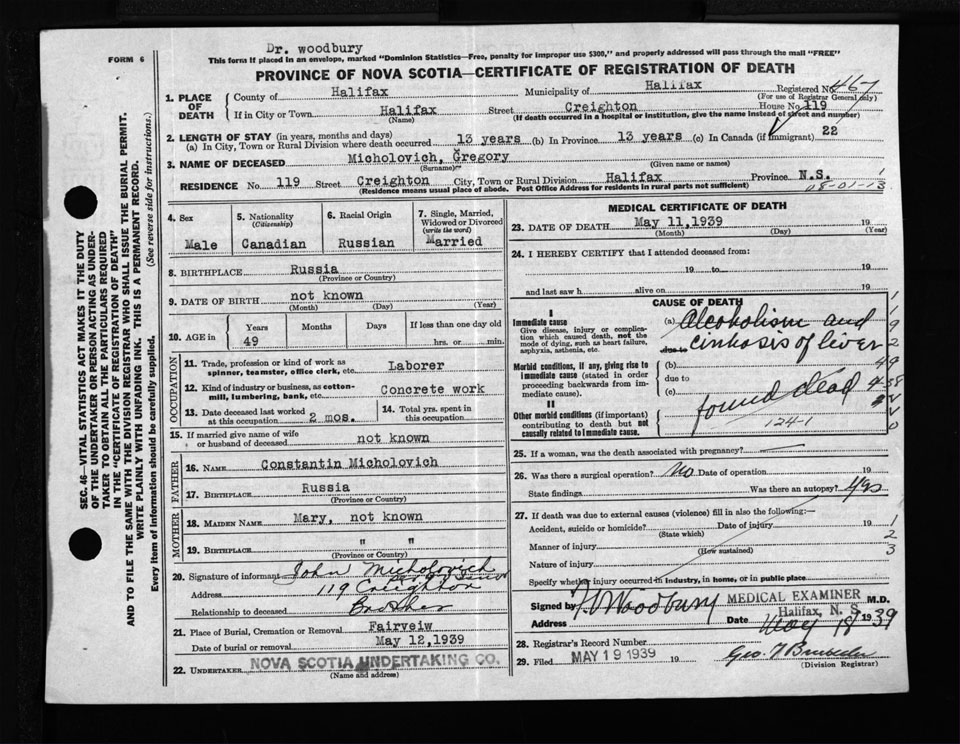 Dr. woodbury
FORM 6
This form if placed in an envelope, marked "Dominion Statistics—Free, penalty for improper use $300," and properly addressed will pass through the mail "FREE"
PROVINCE OF NOVA SCOTIA—CERTIFICATE OF REGISTRATION OF DEATH
SEC. 46—VITAL STATISTICS ACT MAKES IT THE DUTY
OF THE UNDERTAKER OR PERSON ACTING AS UNDER-
TAKER TO OBTAIN ALL THE PARTICULARS REQUIRED
IN THE "CERTIFICATE OF REGISTRATION OF DEATH"
AND TO FILE THE SAME WITH THE DIVISION REGISTRAR WHO SHALL ISSUE THE BURIAL PERMIT.
WRITE PLAINLY WITH UNFADING INK. THIS IS A PERMANENT RECORD.
Every item of information should be carefully supplied. (See reverse side for instructions.)
Registered No. 467
(For use of Registrar General only)
1. PLACE OF DEATH
County of Halifax Municipality of Halifax
If in City or Town Halifax Street Creighton House No. 119
(Name) (If death occurred in a hospital or institution, give the name instead of street and number)
2. LENGTH OF STAY (in years, months and days)
(a) In City, Town or Rural Division where death occurred 13 years (b) In Province 13 years (c) In Canada (if immigrant) 22
3. NAME OF DECEASED Micholovich, Gregory
(Surname) (Given name or names)
RESIDENCE No. 119 Street Creighton City, Town or Rural Division Halifax Province N.S.
(Residence means usual place of abode. Post Office Address for residents in rural parts not sufficient)
08-01-13
1
4. Sex
Male
5. Nationality
(Citizenship)
Canadian
6. Racial Origin
Russian
7. Single, Married,
Widowed or Divorced
(write the word)
Married
8. BIRTHPLACE Russia
(Province or Country)
9. DATE OF BIRTH not known
(Month) (Day) (Year)
10. AGE in
Years Months Days If less than one day old
49 hrs. or min.
OCCUPATION
11. Trade, profession or kind of work as
spinner, teamster, office clerk, etc. Laborer
12. Kind of industry or business, as cotton-
mill, lumbering, bank, etc. Concrete work
13. Date deceased last worked
at this occupation 2 mos.
14. Total yrs. spent in
this occupation
15. If married give name of wife
or husband of deceased not known
FATHER
16. NAME Constantin Micholovich
17. BIRTHPLACE Russia
(Province or Country)
MOTHER
18. MAIDEN NAME Mary, not known
19. BIRTHPLACE " "
(Province or Country)
20. Signature of informant John Micholovich
Address 119 Creighton
Relationship to deceased Brother
21. Place of Burial, Cremation or Removal Fairveiw
Date of burial or removal May 12,1939
22. UNDERTAKER NOVA SCOTIA UNDERTAKING CO.
(Name and address)
MEDICAL CERTIFICATE OF DEATH
23. DATE OF DEATH May 11,1939 19
(Month) (Day) (Year)
24. I HEREBY CERTIFY that I attended deceased from:
19 to 19
and last saw h alive on 19
CAUSE OF DEATH
I
Immediate cause
Give disease, injury or complica-
tion which caused death, not the
mode of dying, such as heart failure,
asphyxia, asthenia, etc.
(a) Alcoholism and
due to
cirrhosis of liver
Morbid conditions, if any, giving rise to
immediate cause (stated in order
proceeding backwards from im-
mediate cause).
(b)
due to
(c)
found dead
II
Other morbid conditions (if important)
contributing to death but not
causally related to immediate cause.
124-1
25. If a woman, was the death associated with pregnancy?
26. Was there a surgical operation? no Date of operation 19
State findings Was there an autopsy? yes
27. If death was due to external causes (violence) fill in also the following:
Accident, suicide or homicide? Date of injury 19
(State which)
Manner of injury
(How sustained)
Nature of injury
Specify whether injury occurred in industry, in home, or in public place
1
2
3
Signed by Woodbury MEDICAL EXAMINER M.D.
Halifax, N. S.
Address Date May 18 1939
28. Registrar's Record Number
29. Filed MAY 19 1939 19
(Division Registrar)